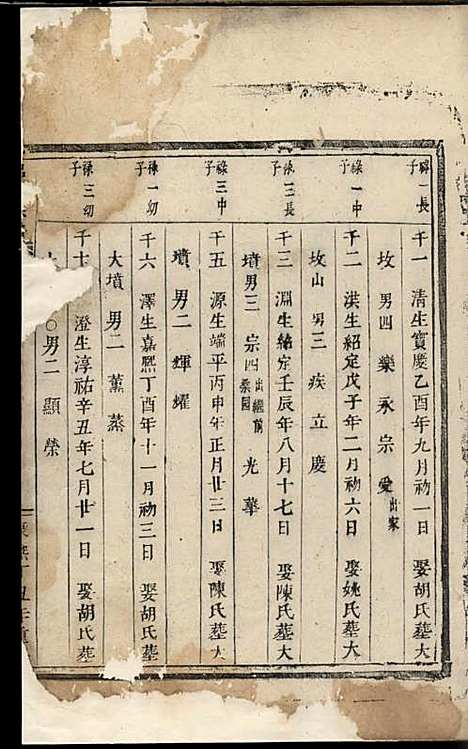 祿一長子
千一 清生寶慶乙酉年九月初一日 娶胡氏墓大
坟 男四 樂永宗愛出家
祿一中子
千二 洪生紹定戊子年二月初六日 娶姚氏墓大
坟山 男三 疾立慶
祿三長子
千三 淵生紹定壬辰年八月十七日 娶陳氏墓大
墳男三 宗四出繼前桑園 光華
祿三中子
千五 源生端平丙申年正月廿三日 娶陳氏墓大
墳 男二 輝耀
祿一幼子
千六 澤生嘉熙丁酉年十一月初三日 娶胡氏墓
大墳 男二 薰蒸
祿三幼子
千七 澄生淳祐辛丑年七月廿一日 娶胡氏墓
○男二 顯榮